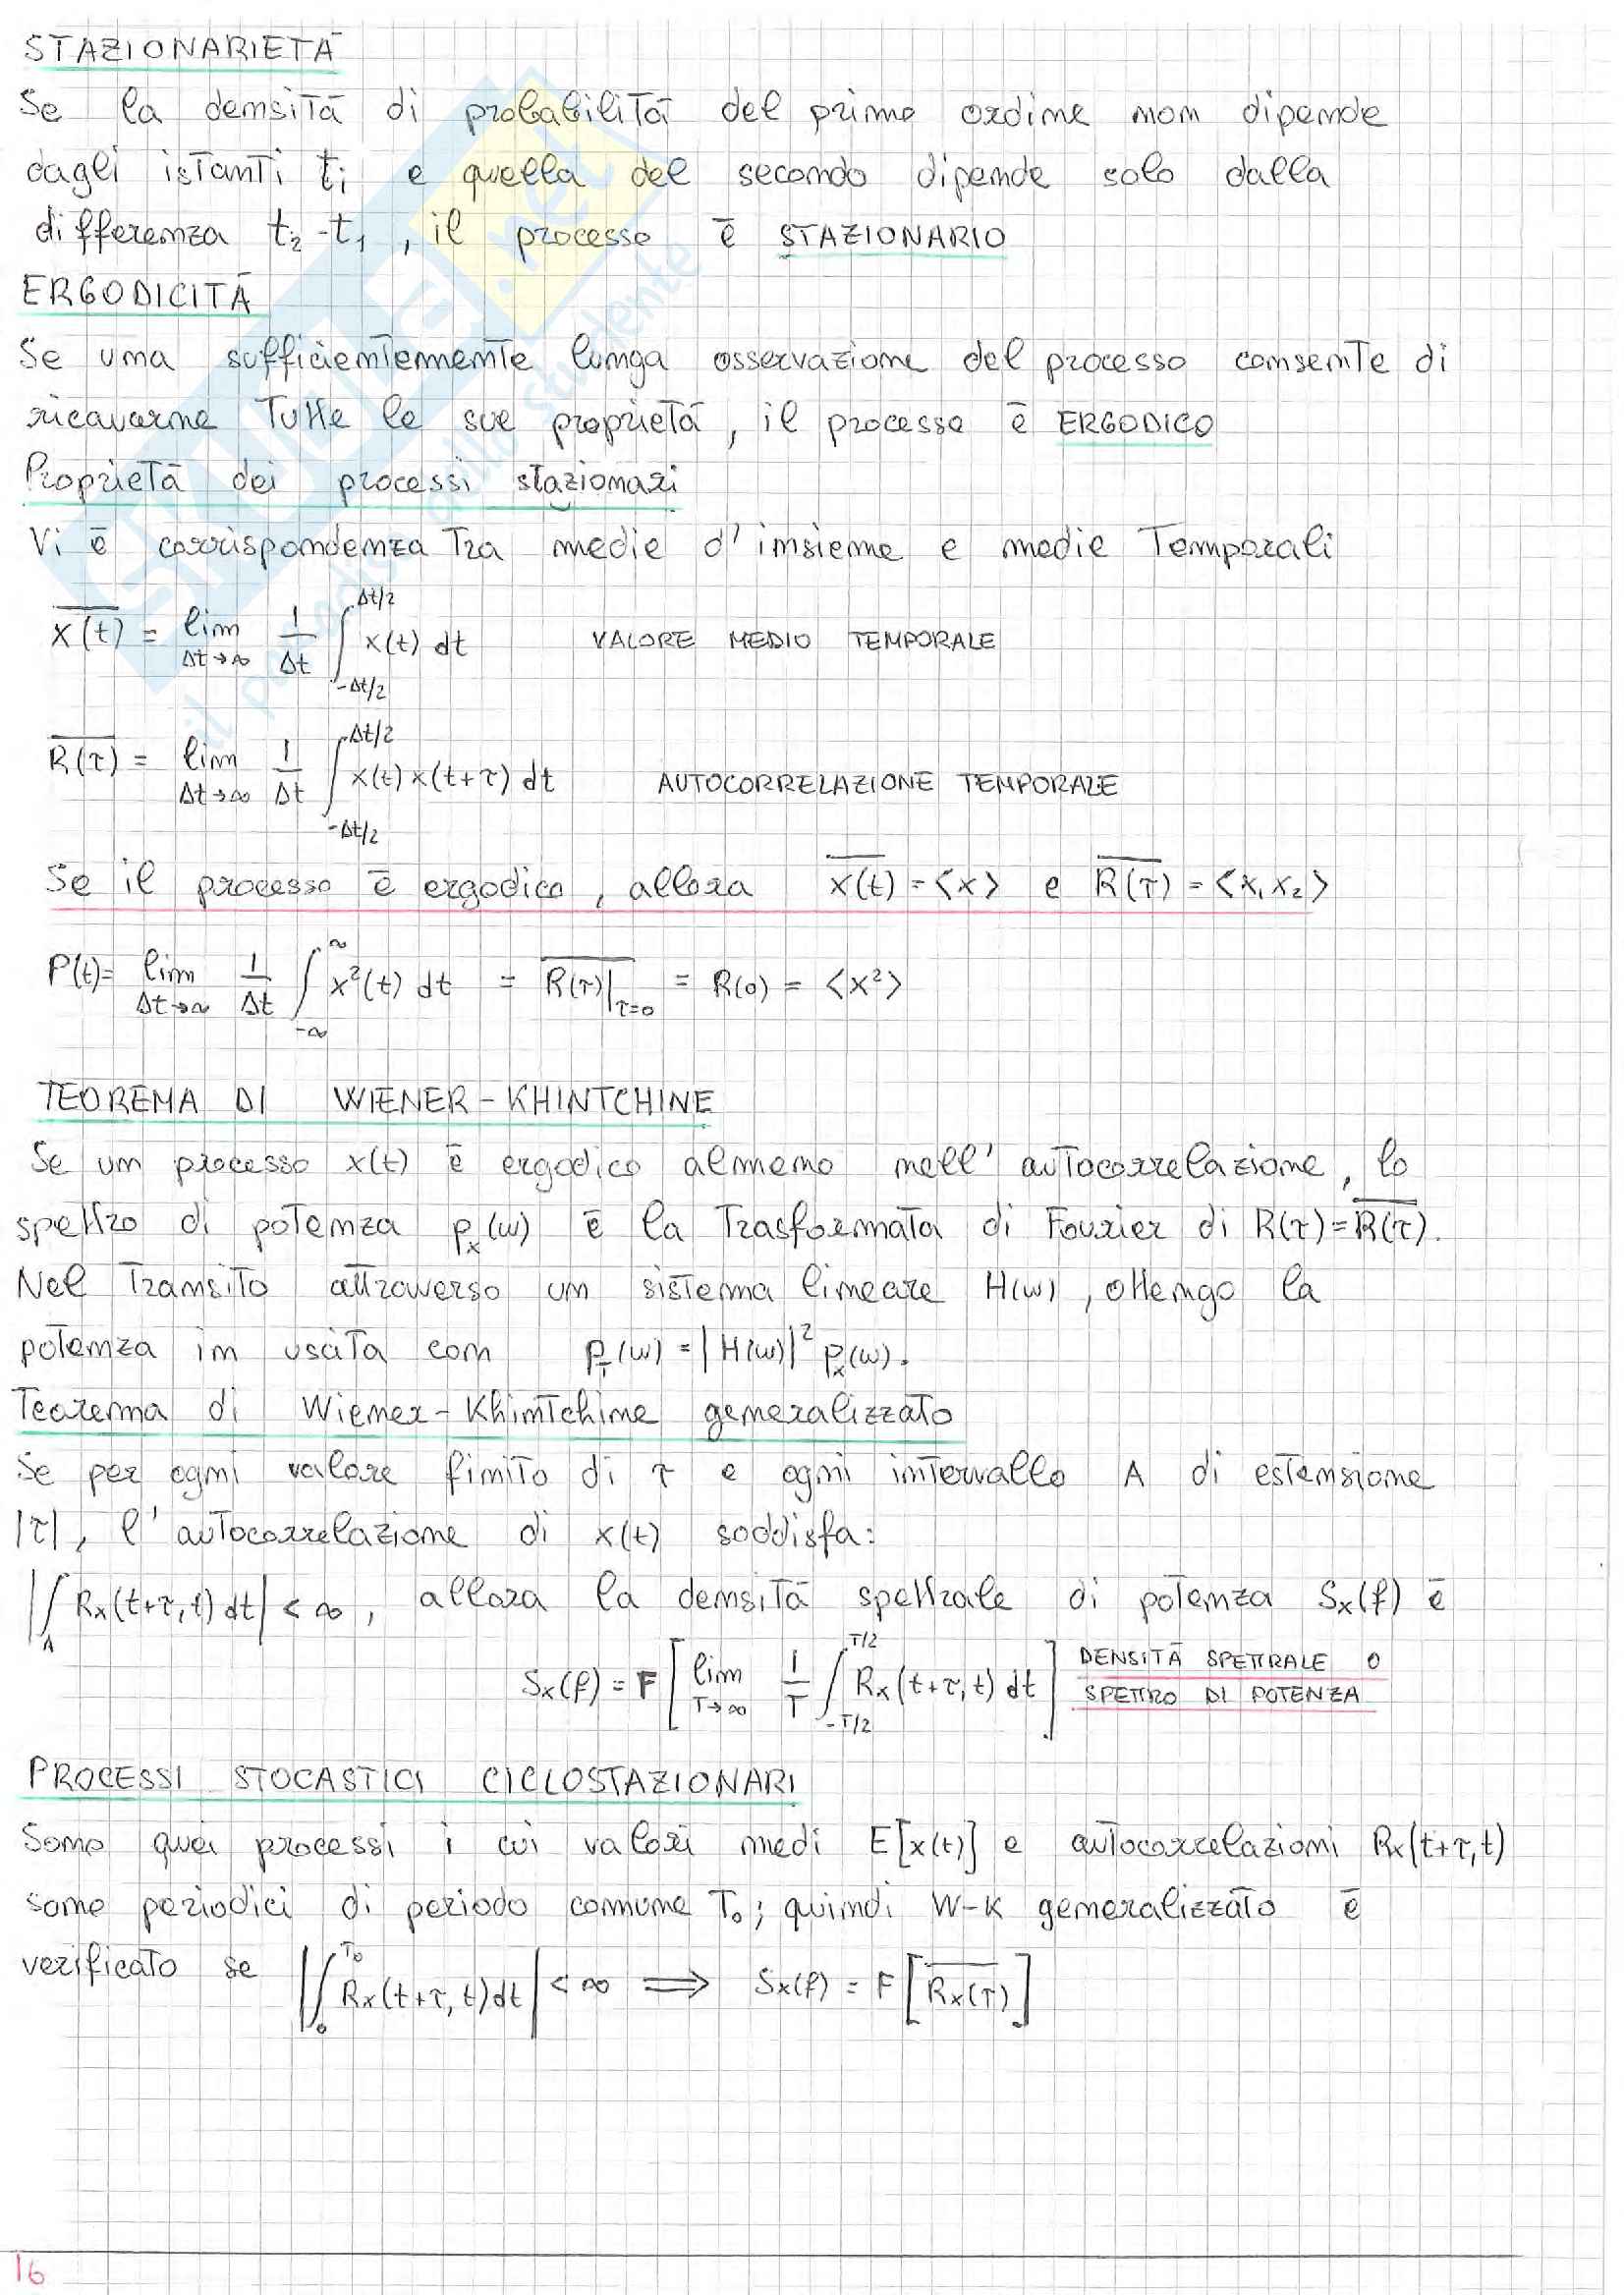 STAZIONARIETÀ
Se la densità di probabilità del primo ordine non dipende
dagli istanti tᵢ e quella del secondo dipende solo dalla
differenza t₂-t₁, il processo è STAZIONARIO
ERGODICITÀ
Se una sufficientemente lunga osservazione del processo consente di
ricavarne tutte le sue proprietà, il processo è ERGODICO
Proprietà dei processi stazionari
Vi è corrispondenza tra medie d'insieme e medie temporali
\overline{x(t)} = lim_{Δt→∞} 1/Δt ∫_{-Δt/2}^{Δt/2} x(t) dt VALORE MEDIO TEMPORALE
\overline{R(τ)} = lim_{Δt→∞} 1/Δt ∫_{-Δt/2}^{Δt/2} x(t) x(t+τ) dt AUTOCORRELAZIONE TEMPORALE
Se il processo è ergodico, allora \overline{x(t)} = <x> e \overline{R(τ)} = <x₁x₂>
P(t) = lim_{Δt→∞} 1/Δt ∫_{-∞}^{∞} x²(t) dt = \overline{R(τ)}|_{τ=0} = R(0) = <x²>
TEOREMA DI WIENER-KHINTCHINE
Se un processo x(t) è ergodico almeno nell'autocorrelazione, lo
spettro di potenza pₓ(ω) è la trasformata di Fourier di R(τ) = \overline{R(τ)}.
Nel transito attraverso un sistema lineare H(ω), ottengo la
potenza in uscita con p_T(ω) = |H(ω)|² pₓ(ω).
Teorema di Wiener-Khintchine generalizzato
Se per ogni valore finito di τ e ogni intervallo A di estensione
|τ|, l'autocorrelazione di x(t) soddisfa:
|∫_A Rx(t+τ,t) dt| < ∞, allora la densità spettrale di potenza Sx(f) è
Sx(f) = F[lim_{T→∞} 1/T ∫_{-T/2}^{T/2} Rx(t+τ,t) dt] DENSITÀ SPETTRALE O
SPETTRO DI POTENZA
PROCESSI STOCASTICI CICLOSTAZIONARI
Sono quei processi i cui valori medi E[x(t)] e autocorrelazioni Rx(t+τ,t)
sono periodici di periodo comune T₀; quindi W-K generalizzato è
verificato se |∫_0^{T₀} Rx(t+τ,t) dt| < ∞ ⟹ Sx(f) = F[\overline{Rx(τ)}]
16